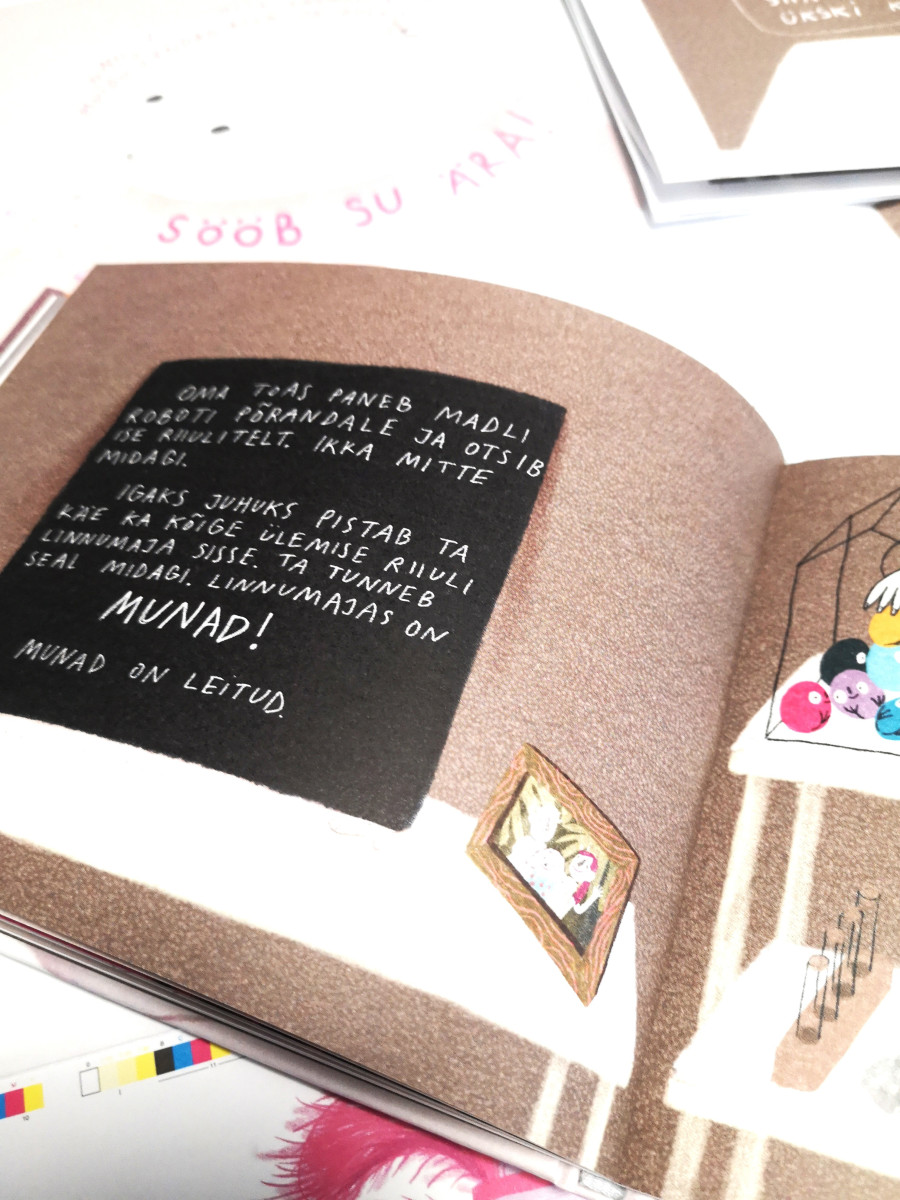 ÜKSKI
SÖÖB SU ÄRA!
OMA TOAS PANEB MADLI
ROBOTI PÕRANDALE JA OTSIB
ISE RIIULITELT. IKKA MITTE
MIDAGI.
IGAKS JUHUKS PISTAB TA
KÄE KA KÕIGE ÜLEMISE RIIULI
LINNUMAJA SISSE. TA TUNNEB
SEAL MIDAGI. LINNUMAJAS ON
MUNAD!
MUNAD ON LEITUD.